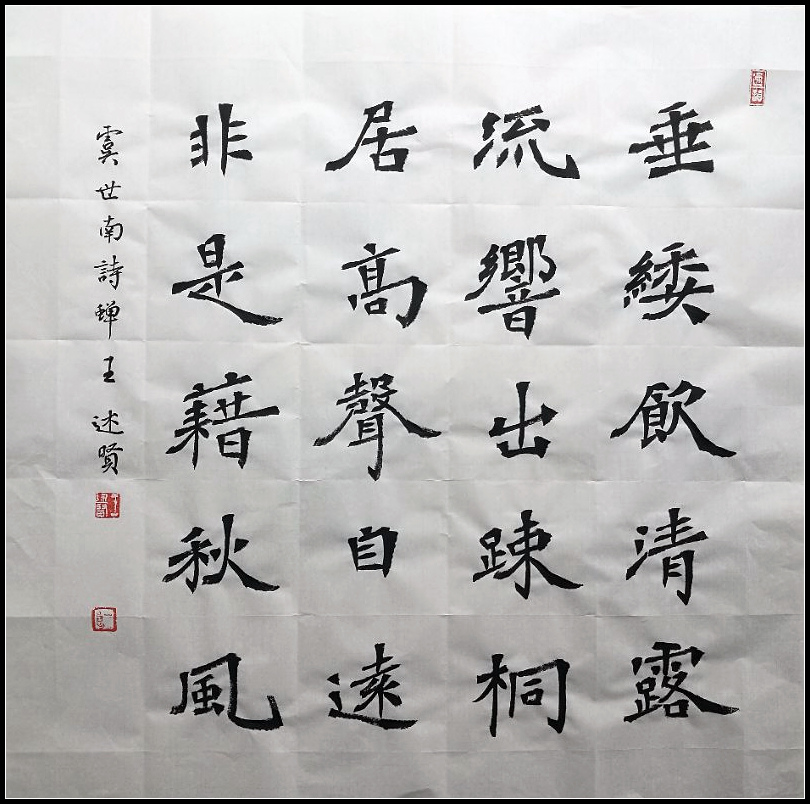 垂緌飲清露
流響出踈桐
居高聲自遠
非是藉秋風
虞世南詩蝉王述賢